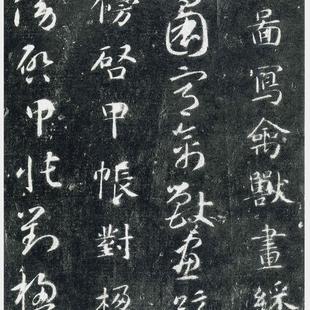 圖寫禽獸畫綵
圖寫禽獸畫綵
傍啓甲帳對楹
傍啓甲帳對楹